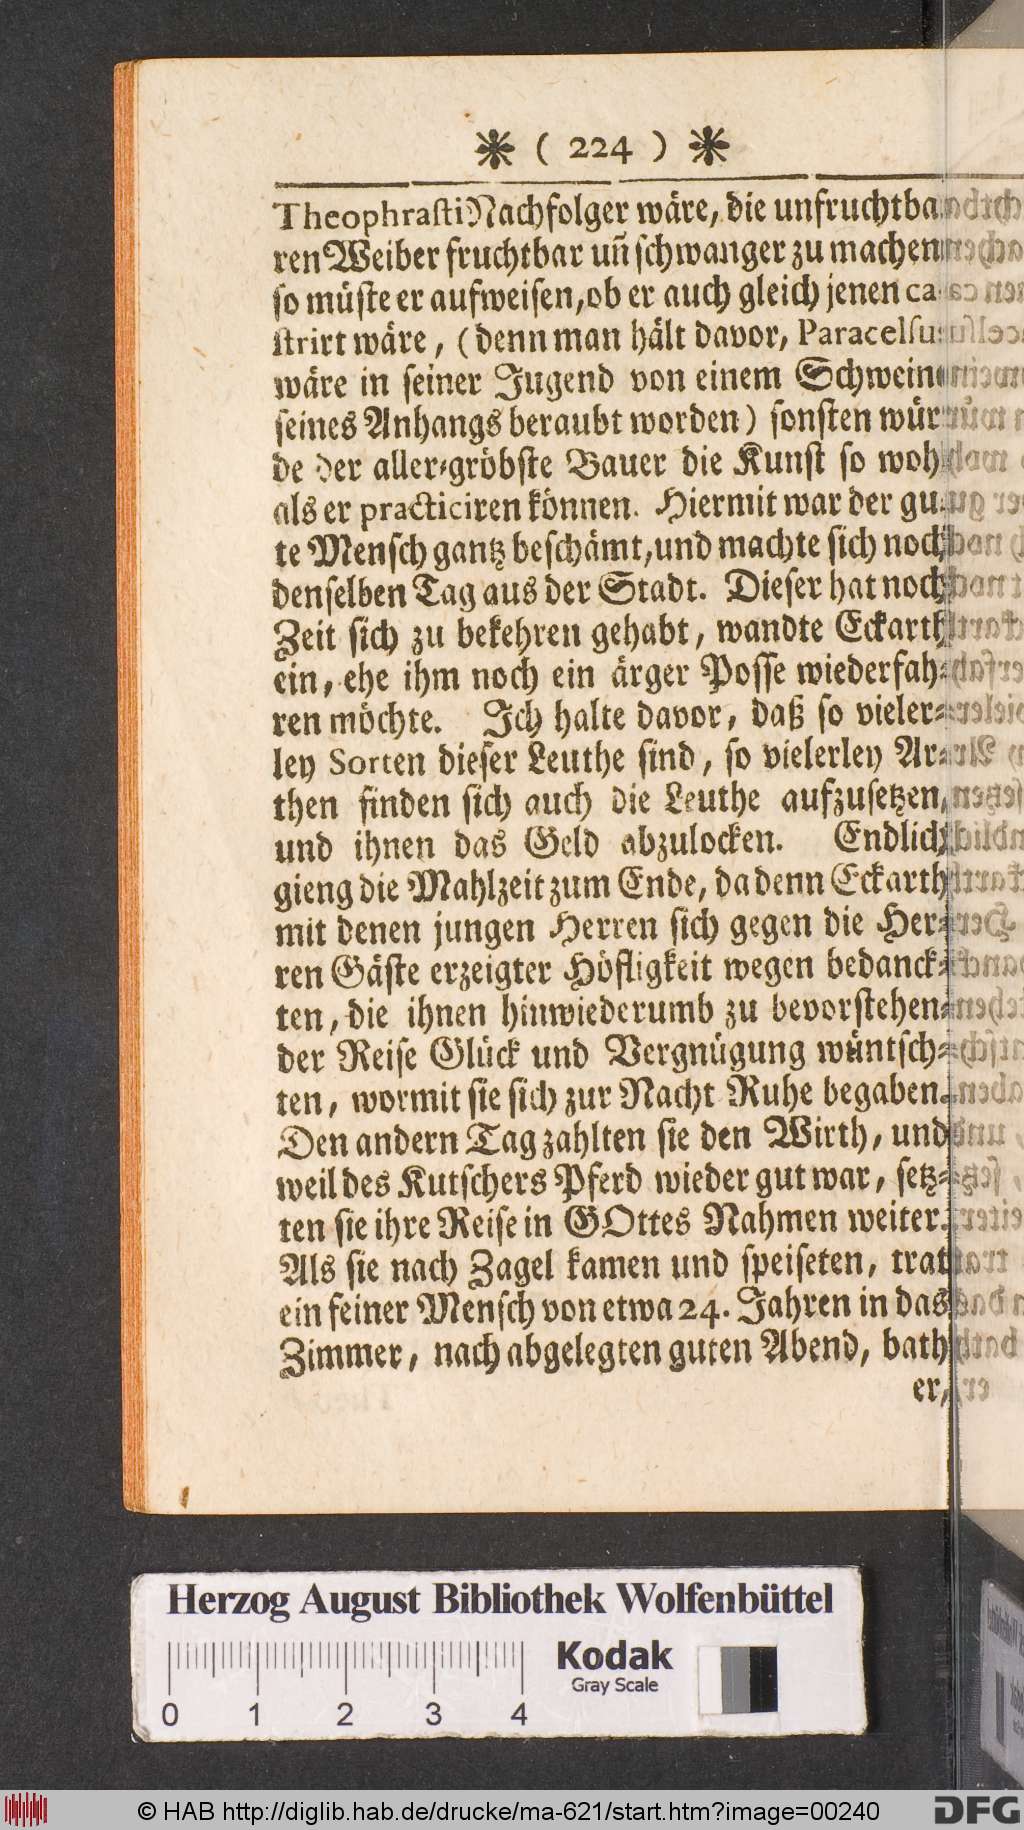 * ( 224 ) *
Theophrasti Nachfolger wäre, die unfruchtba-
ren Weiber fruchtbar uñ schwanger zu machen
so müste er aufweisen, ob er auch gleich jenen ca-
strirt wäre, (denn man hält davor, Paracelsus
wäre in seiner Jugend von einem Schwein
seines Anhangs beraubt worden) sonsten wür-
de der aller-gröbste Bauer die Kunst so wohl
als er practiciren können. Hiermit war der gu-
te Mensch gantz beschämt, und machte sich noch
denselben Tag aus der Stadt. Dieser hat noch
Zeit sich zu bekehren gehabt, wandte Eckarth
ein, ehe ihm noch ein ärger Posse wiederfah-
ren möchte. Ich halte davor, daß so vieler-
ley Sorten dieser Leuthe sind, so vielerley Ar-
then finden sich auch die Leuthe aufzusetzen,
und ihnen das Geld abzulocken. Endlich
gieng die Mahlzeit zum Ende, da denn Eckarth
mit denen jungen Herren sich gegen die Her-
ren Gäste erzeigter Höfligkeit wegen bedanck-
ten, die ihnen hinwiederumb zu bevorstehen-
der Reise Glück und Vergnügung wüntsch-
ten, wormit sie sich zur Nacht Ruhe begaben.
Den andern Tag zahlten sie den Wirth, und
weil des Kutschers Pferd wieder gut war, setz-
ten sie ihre Reise in GOttes Nahmen weiter.
Als sie nach Zagel kamen und speiseten, trat
ein feiner Mensch von etwa 24. Jahren in das
Zimmer, nach abgelegten guten Abend, bath
er,
Herzog August Bibliothek Wolfenbüttel
Kodak
Gray Scale
0 1 2 3 4
© HAB http://diglib.hab.de/drucke/ma-621/start.htm?image=00240
DFG